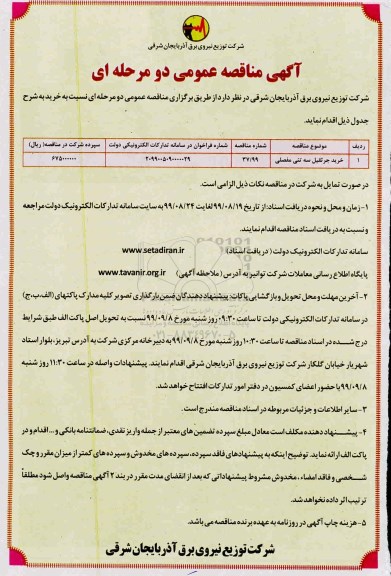 شرکت توزیع نیروی برق آذربایجان شرقی
آگهی مناقصه عمومی دو مرحله ای
شرکت توزیع نیروی برق آذربایجان شرقی در نظر دارد از طریق برگزاری مناقصه عمومی دو مرحله ای نسبت به خرید به شرح
جدول ذیل اقدام نماید.
ردیف موضوع مناقصه شماره مناقصه شماره فراخوان در سامانه تدارکات الکترونیکی دولت سپرده شرکت در مناقصه( ریال)
۱ خرید جرثقیل سه تنی مفصلی ۳۷/۹۹ ۲۰۹۹۰۰۵۰۹۰۰۰۰۲۹ ۶۷۵۰۰۰۰۰۰
در صورت تمایل به شرکت در مناقصه نکات ذیل الزامی است.
۱- زمان و محل و نحوه دریافت اسناد: از تاریخ ۹۹/۰۸/۱۹ لغایت ۹۹/۰۸/۲۴ به سایت سامانه تدارکات الکترونیک دولت مراجعه
و نسبت به دریافت اسناد مناقصه اقدام نمایند.
سامانه تدارکات الکترونیک دولت ( دریافت اسناد) www.setadiran.ir
پایگاه اطلاع رسانی معاملات شرکت توانیر به آدرس ( ملاحظه آگهی) www.tavanir.org.ir
۲- آخرین مهلت و محل تحویل و بازگشایی پاکات: پیشنهاد دهندگان ضمن بارگذاری تصویر کلیه مدارک پاکتهای (الف،ب،ج)
در سامانه تدارکات الکترونیکی دولت تا ساعت ۰۹:۳۰ روز شنبه مورخ ۹۹/۰۹/۸ نسبت به تحویل اصل پاکت الف طبق شرایط
درج شده در اسناد مناقصه تا ساعت ۱۰:۳۰ روز شنبه مورخ ۹۹/۰۹/۸ به دبیرخانه مرکزی شرکت به آدرس تبریز، بلوار استاد
شهریار خیابان گلکار شرکت توزیع نیروی برق آذربایجان شرقی اقدام نمایند. پیشنهادات واصله در ساعت ۱۱:۳۰ روز شنبه
۹۹/۰۹/۸ با حضور اعضای کمیسیون در دفتر امور تدارکات افتتاح خواهد شد.
۳- سایر اطلاعات و جزئیات مربوطه در اسناد مناقصه مندرج است.
۴- پیشنهاد دهنده مکلف است معادل مبلغ سپرده تضمین های معتبر از جمله واریز نقدی، ضمانتنامه بانکی و... اقدام و در
پاکت الف ارائه نماید. توضیح اینکه به پیشنهادهای فاقد سپرده، سپرده های مخدوش و سپرده های کمتر از میزان مقرر و چک
شخصی و فاقد امضاء، مخدوش مشروط پیشنهاداتی که بعد از انقضای مدت مقرر در بند ۲ آگهی مناقصه واصل شود مطلقاً
ترتیب اثر داده نخواهد شد.
۵- هزینه چاپ آگهی در روزنامه به عهده برنده مناقصه می باشد.
شرکت توزیع نیروی برق آذربایجان شرقی